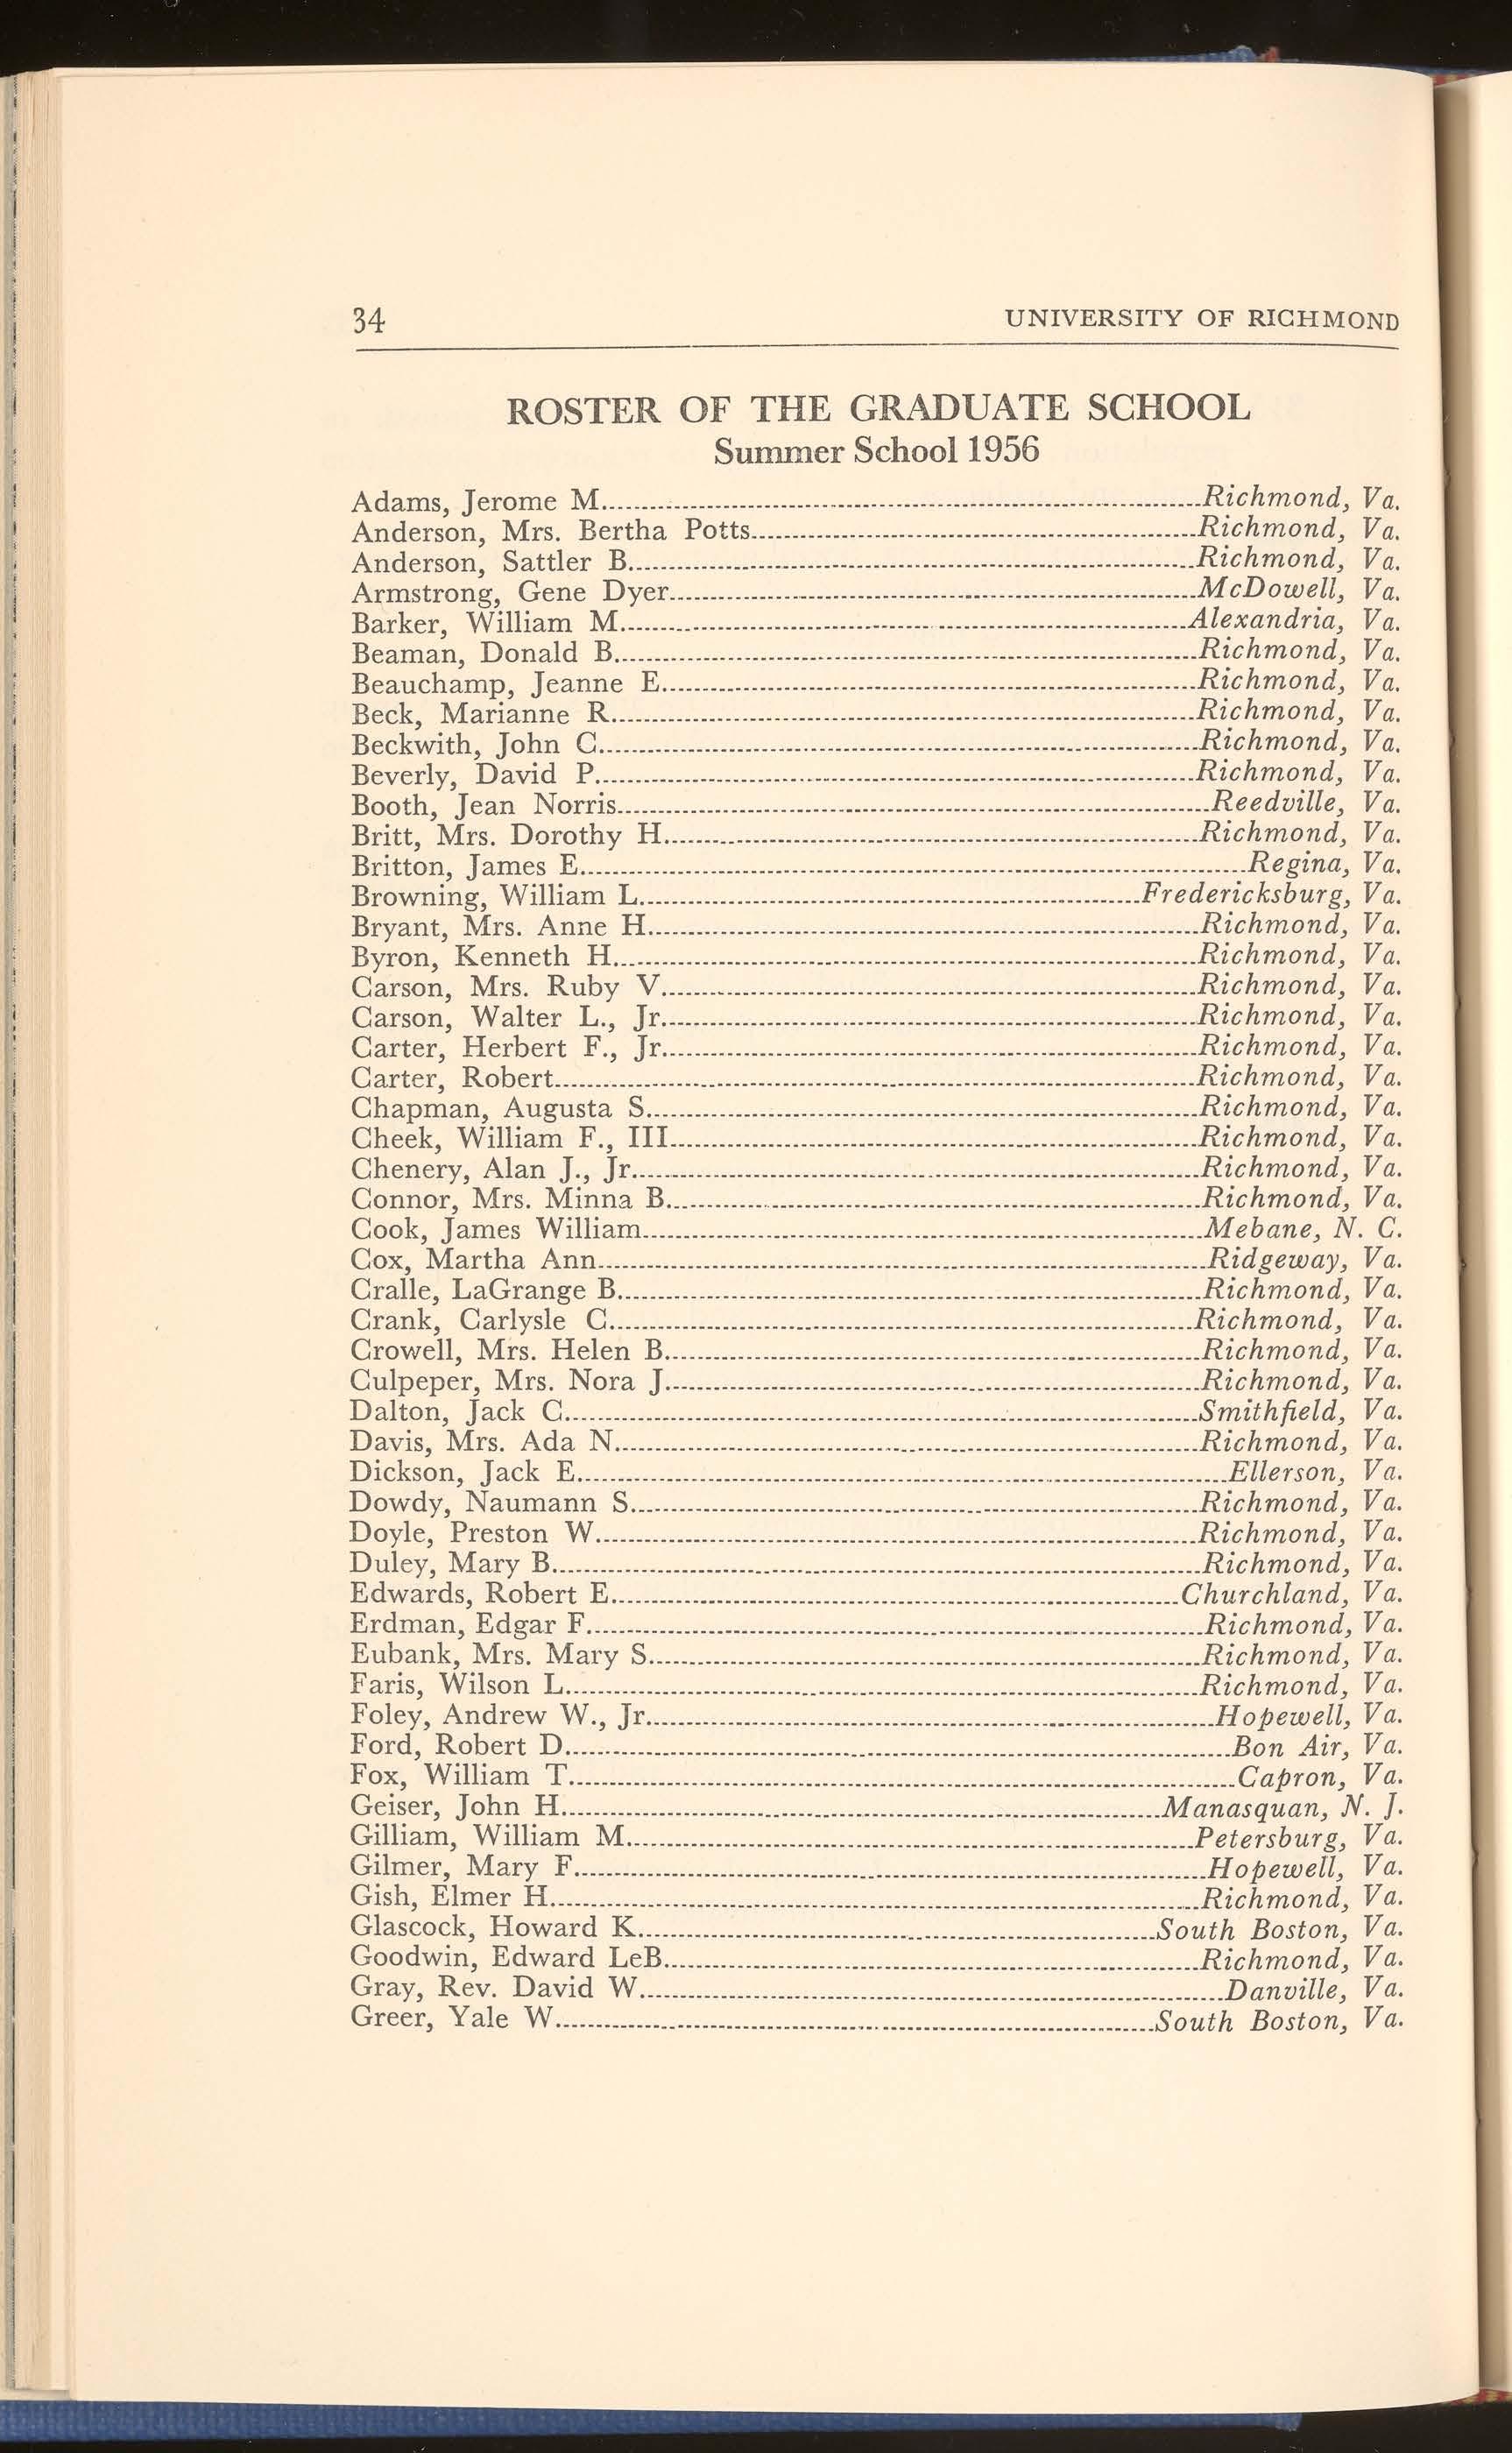 34 UNIVERSITY OF RICHMOND
ROSTER OF THE GRADUATE SCHOOL
Summer School 1956
Adams, Jerome M. Richmond, Va.
Anderson, Mrs. Bertha Potts Richmond, Va.
Anderson, Sattler B. Richmond, Va.
Armstrong, Gene Dyer McDowell, Va.
Barker, William M. Alexandria, Va.
Beaman, Donald B. Richmond, Va.
Beauchamp, Jeanne E. Richmond, Va.
Beck, Marianne R. Richmond, Va.
Beckwith, John C. Richmond, Va.
Beverly, David P. Richmond, Va.
Booth, Jean Norris Reedville, Va.
Britt, Mrs. Dorothy H. Richmond, Va.
Britton, James E. Regina, Va.
Browning, William L. Fredericksburg, Va.
Bryant, Mrs. Anne H. Richmond, Va.
Byron, Kenneth H. Richmond, Va.
Carson, Mrs. Ruby V. Richmond, Va.
Carson, Walter L., Jr. Richmond, Va.
Carter, Herbert F., Jr. Richmond, Va.
Carter, Robert Richmond, Va.
Chapman, Augusta S. Richmond, Va.
Cheek, William F., III Richmond, Va.
Chenery, Alan J., Jr. Richmond, Va.
Connor, Mrs. Minna B. Richmond, Va.
Cook, James William Mebane, N. C.
Cox, Martha Ann Ridgeway, Va.
Cralle, LaGrange B. Richmond, Va.
Crank, Carlysle C. Richmond, Va.
Crowell, Mrs. Helen B. Richmond, Va.
Culpeper, Mrs. Nora J. Richmond, Va.
Dalton, Jack C. Smithfield, Va.
Davis, Mrs. Ada N. Richmond, Va.
Dickson, Jack E. Ellerson, Va.
Dowdy, Naumann S. Richmond, Va.
Doyle, Preston W. Richmond, Va.
Duley, Mary B. Richmond, Va.
Edwards, Robert E. Churchland, Va.
Erdman, Edgar F. Richmond, Va.
Eubank, Mrs. Mary S. Richmond, Va.
Faris, Wilson L. Richmond, Va.
Foley, Andrew W., Jr. Hopewell, Va.
Ford, Robert D. Bon Air, Va.
Fox, William T. Capron, Va.
Geiser, John H. Manasquan, N. J.
Gilliam, William M. Petersburg, Va.
Gilmer, Mary F. Hopewell, Va.
Gish, Elmer H. Richmond, Va.
Glascock, Howard K. South Boston, Va.
Goodwin, Edward LeB. Richmond, Va.
Gray, Rev. David W. Danville, Va.
Greer, Yale W. South Boston, Va.